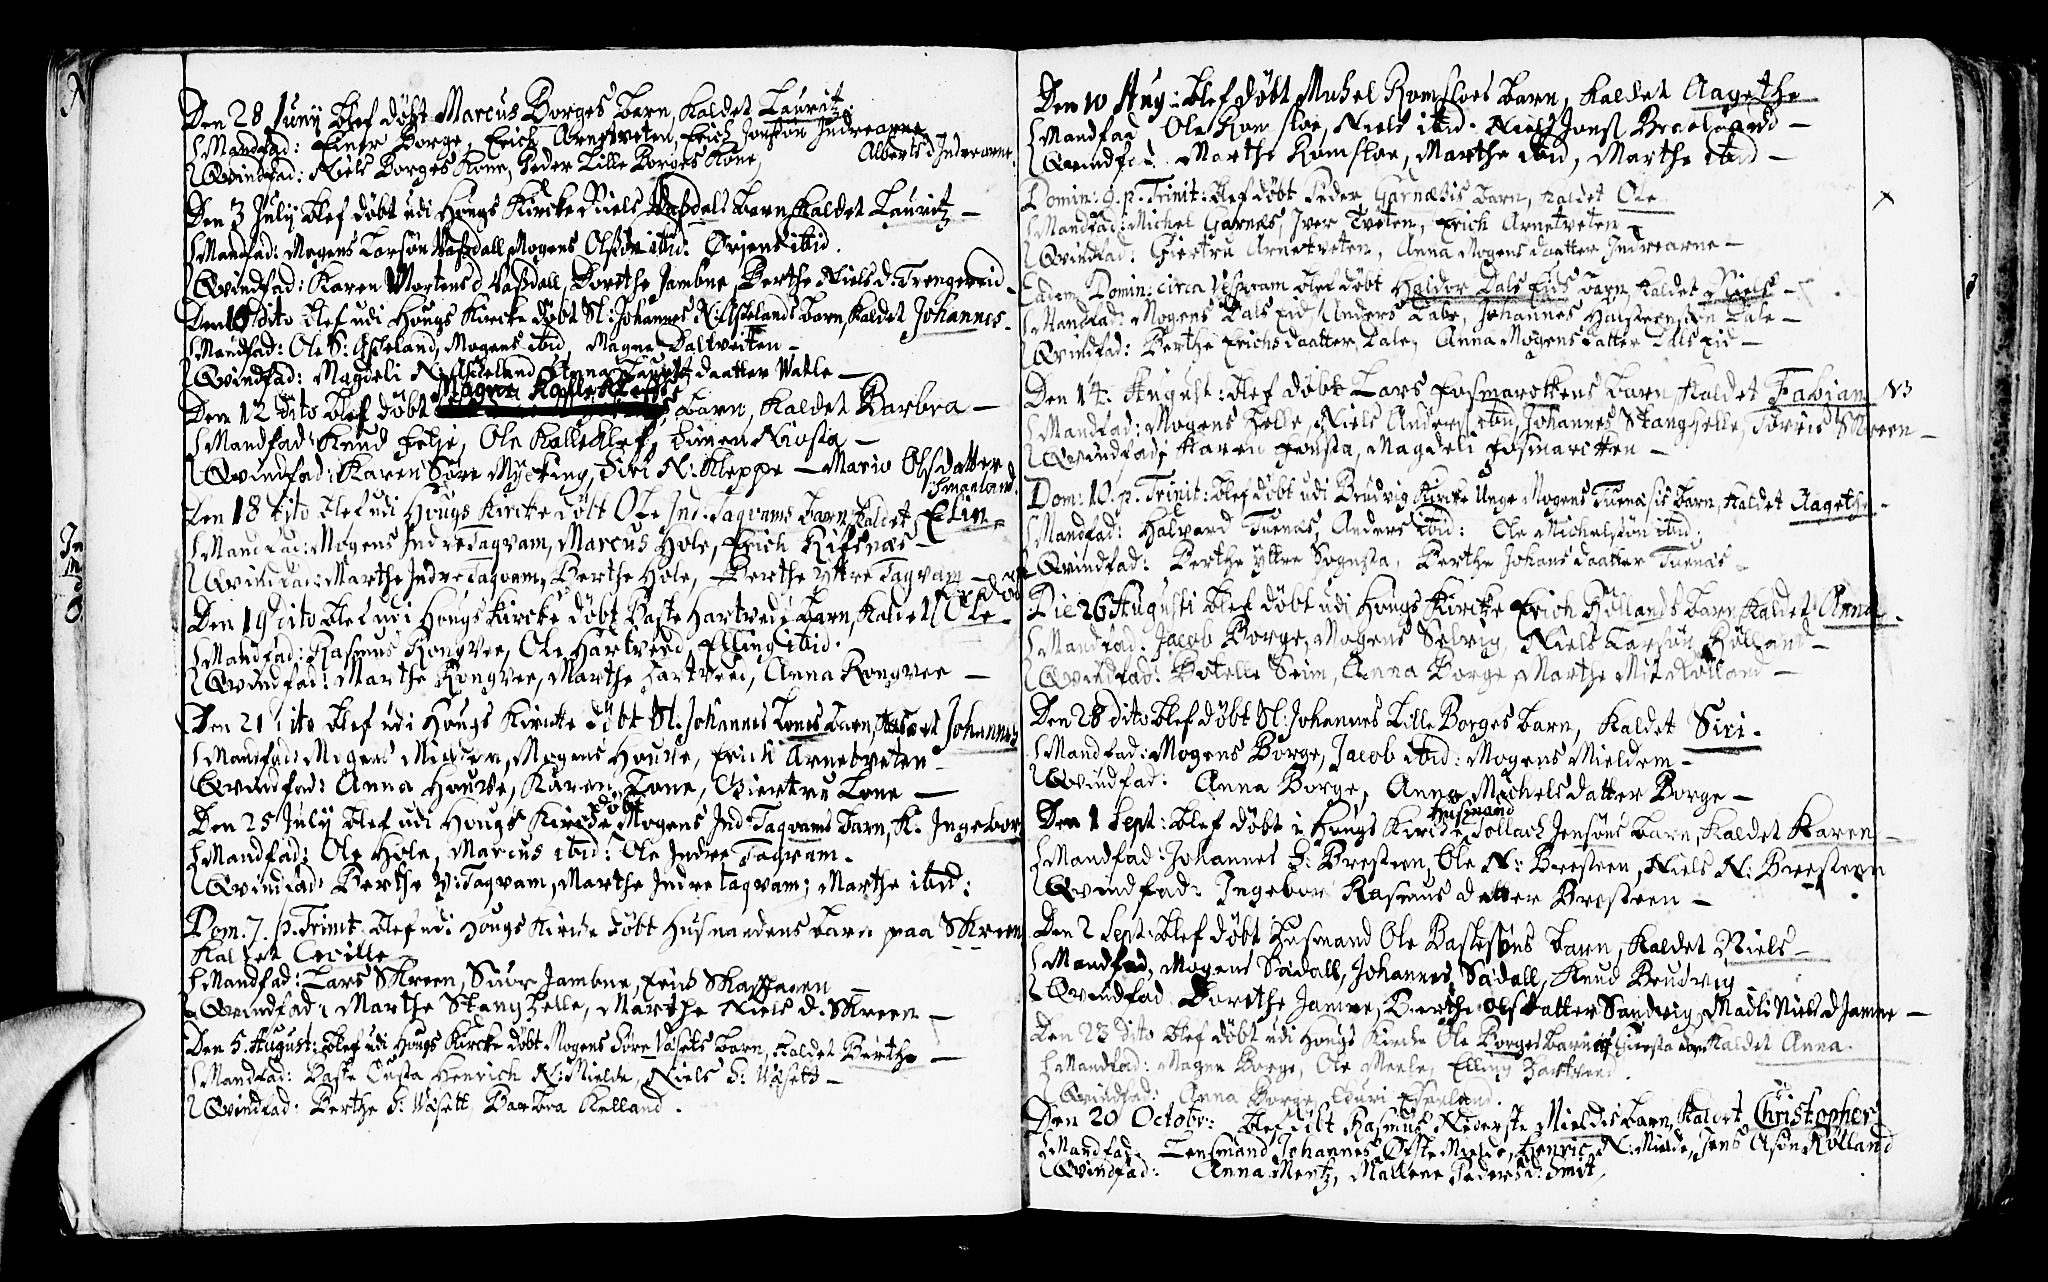 Den 28 Juny blef döbt Marcus Borges barn, kaldet Lauritz.
Mandfad: Einer Borge, Erich Arnetveten, Erich Jonsøn Indrearne
Qvindfad: Niels Borges Kone, Peder Lille Borges Kone, Albertsd Indrearne
Den 3 July blef döbt udi Hougs Kircke Niels Vassdals barn, kaldet Lauritz
Mandfad: Mogens Larsøn Vassdall, Mogens Olsøn ibid: Örjens ibid.
Qvindfad: Karen Mortensd Vassdall, Dorethe Jambne, Berthe Nielsd. Trengereid
dito blef udi Hougs Kircke döbt Sl: Johannes N: Espelands barn, kaldet Johannes.
Mandfad: Ole S: Espeland, Mogens ibid Magne Daltveiten
Qvindfad: Magdeli N: Espeland, Anna Lauritz daatter Vatle
Magne Kalleklefs
Den 12 dito blef döbt barn, kaldet Barbra
Mandfad: Knud Felje, Ole Kalleklef, Einer Niosta
Qvindfad: Karen Söre Mycking, Siri N: Kleppe Mario Olsdatter
Smaaland.
Den 18 dito blef udi Hougs Kircke döbt Ole Ind: Taqvams barn, kaldet Elin
Mandfad: Mogens Indre Taqvam, Marcus Hole, Erich Rifsnæs
Qvindfad: Marthe Indre Taqvam, Berthe Hole, Berthe yttre Taqvam
er död
Den 19 dito blef udi Hougs Kircke döbt Baste Hartveds barn, kaldet Ole
Mandfad: Rasmus Rongvee, Ole Hartveed, Elling ibid.
Qvindfad: Marthe Rongvee, Marthe Hartveed, Anna Rongvee
Den 21 dito blef udi Hougs Kircke döbt Sl: Johannes Lones barn, kaldet Johannes
Mandfad: Mogens Mielden, Mogens Houge, Erich Arnetveten
Qvindfad: Anna Houge, Karen Lone, Giertru Lone
döbt
Den 25 July blef udi Hougs Kircke Mogens Ind: Taqvams barn, k. Ingebor
Mandfad: Ole Hole, Marcus ibid: Ole Indre Taqvam.
Qvindfad: Berthe Y: Taqvam, Marthe Indre Taqvam; Marthe ibid:
Dom. 7. p. Trinit. blef udi Hougs Kircke döbt Husmandens barn paa Skreen
kaldet Cecille
Mandfad: Lars Skreen, Siur Jambne, Erich
Qvindfad: Marthe Stanghelle, Marthe Niels d. Skreen
Den 5. August: blef udi Hougs Kircke döbt Mogens Söre Vasets barn, kaldet Berthe
Mandfad: Baste Henrich N: Mielde, Niels S: Vasett
Qvindfad: Berthe S: Vasett, Barbra Helland.
Den 10 Aug: blef döbt Michel Romsloes barn, kaldet Aagethe
Mandfad Ole Romsloe, Niels ibid. Niels Jons Bruland
Qvindfad. Marthe Romsloe, Marthe ibid, Marthe ibid
Domin: 9. p. Trinit: blef döbt Peder Garnæsis barn, kaldet Ole
Mandfad: Michel Garnæs, Iver Tveten, Erich Arnetveten
Qvindfad: Giertru Arnetveten, Anna Mogens daatter Indrearne
Eadem Domin: circa Vesperam blef döbt Haldor Dals Eids barn, kaldet Niels
Mandfad: Mogens Dals Eid, Anders Dale, Johannes Halsteensøn Dale
Qvindfad: Berthe Erichsdaatter Dale, Anna Mogensdatter Dalseid
Den 14. August: blef döbt Lars Fosmarckens barn, kaldet Fabian
Mandfad: Mogens Helle, Niels Anders ibid, Johannes Stanghelle, Torris Skreen
Qvindfad: Karen Fonsta, Magdeli Fosmarcken
Dom: 10. p. Trinit: blef döbt udi Brudvig Kircke Unge Mogens Tuenæsis barn, kaldet Aagethe
Mandfad: Halvard Tuenæs, Anders ibid: Ole Michelsøn ibid.
Qvindfad: Berthe yttre Sognsta, Berthe Johansdaatter Tuenæs
Die 26 Augusti blef döbt udi Hougs Kircke Erich Röllands barn, kaldet Anna
Mandfad: Jacob Borge, Mogens Selvig, Niels Larsøn Rölland
Qvindfad: Botelle Seim, Anna Borge, Marthe Rolland
Den 28 dito blef döbt Sl: Johannes Lille Borges barn, kaldet Siri.
Mandfad: Mogens Borge, Jacob ibid: Mogens Mielden
Qvindfad: Anna Borge, Anna Michelsdatter Borge
Husmand
Den 1 Sept: blef döbt i Hougs Kircke, Tollach Jensøns barn, kaldet Karen
Mandfad: Johannes S: Bresteen, Ole N: Bresteen, Niels N: Bresteen
Qvindfad: Ingebor Rasmusdatter Bresteen
Den 2 Sept: blef döbt Husmand Ole Bastesøns barn, kaldet Niels
Mandfad, Mogens Sædall, Johannes Sædall, Knud Brudvig
Qvindfad Dorethe Jamne, Berthe Olsdatter Sandvig, Madli Niels d Jamne
Den 23 dito blef döbt udi Hougs Kircke Ole Borges barn kaldet Anna.
Mandfad: Magne Borge, Ole Meele, Elling Hartveed.
Qvindfad: Anna Borge, Guri Espeland.
Den 20 Octobr: blef döbt Rasmus Nederste Mieldes barn, kaldet Christopher
Mandfad. Lensmand Johannes Öfste Mielde, Henric N: Mielde, Jens Rolland
Qvindfad: Anna Mentz, Mallene Pedersd: Smit.